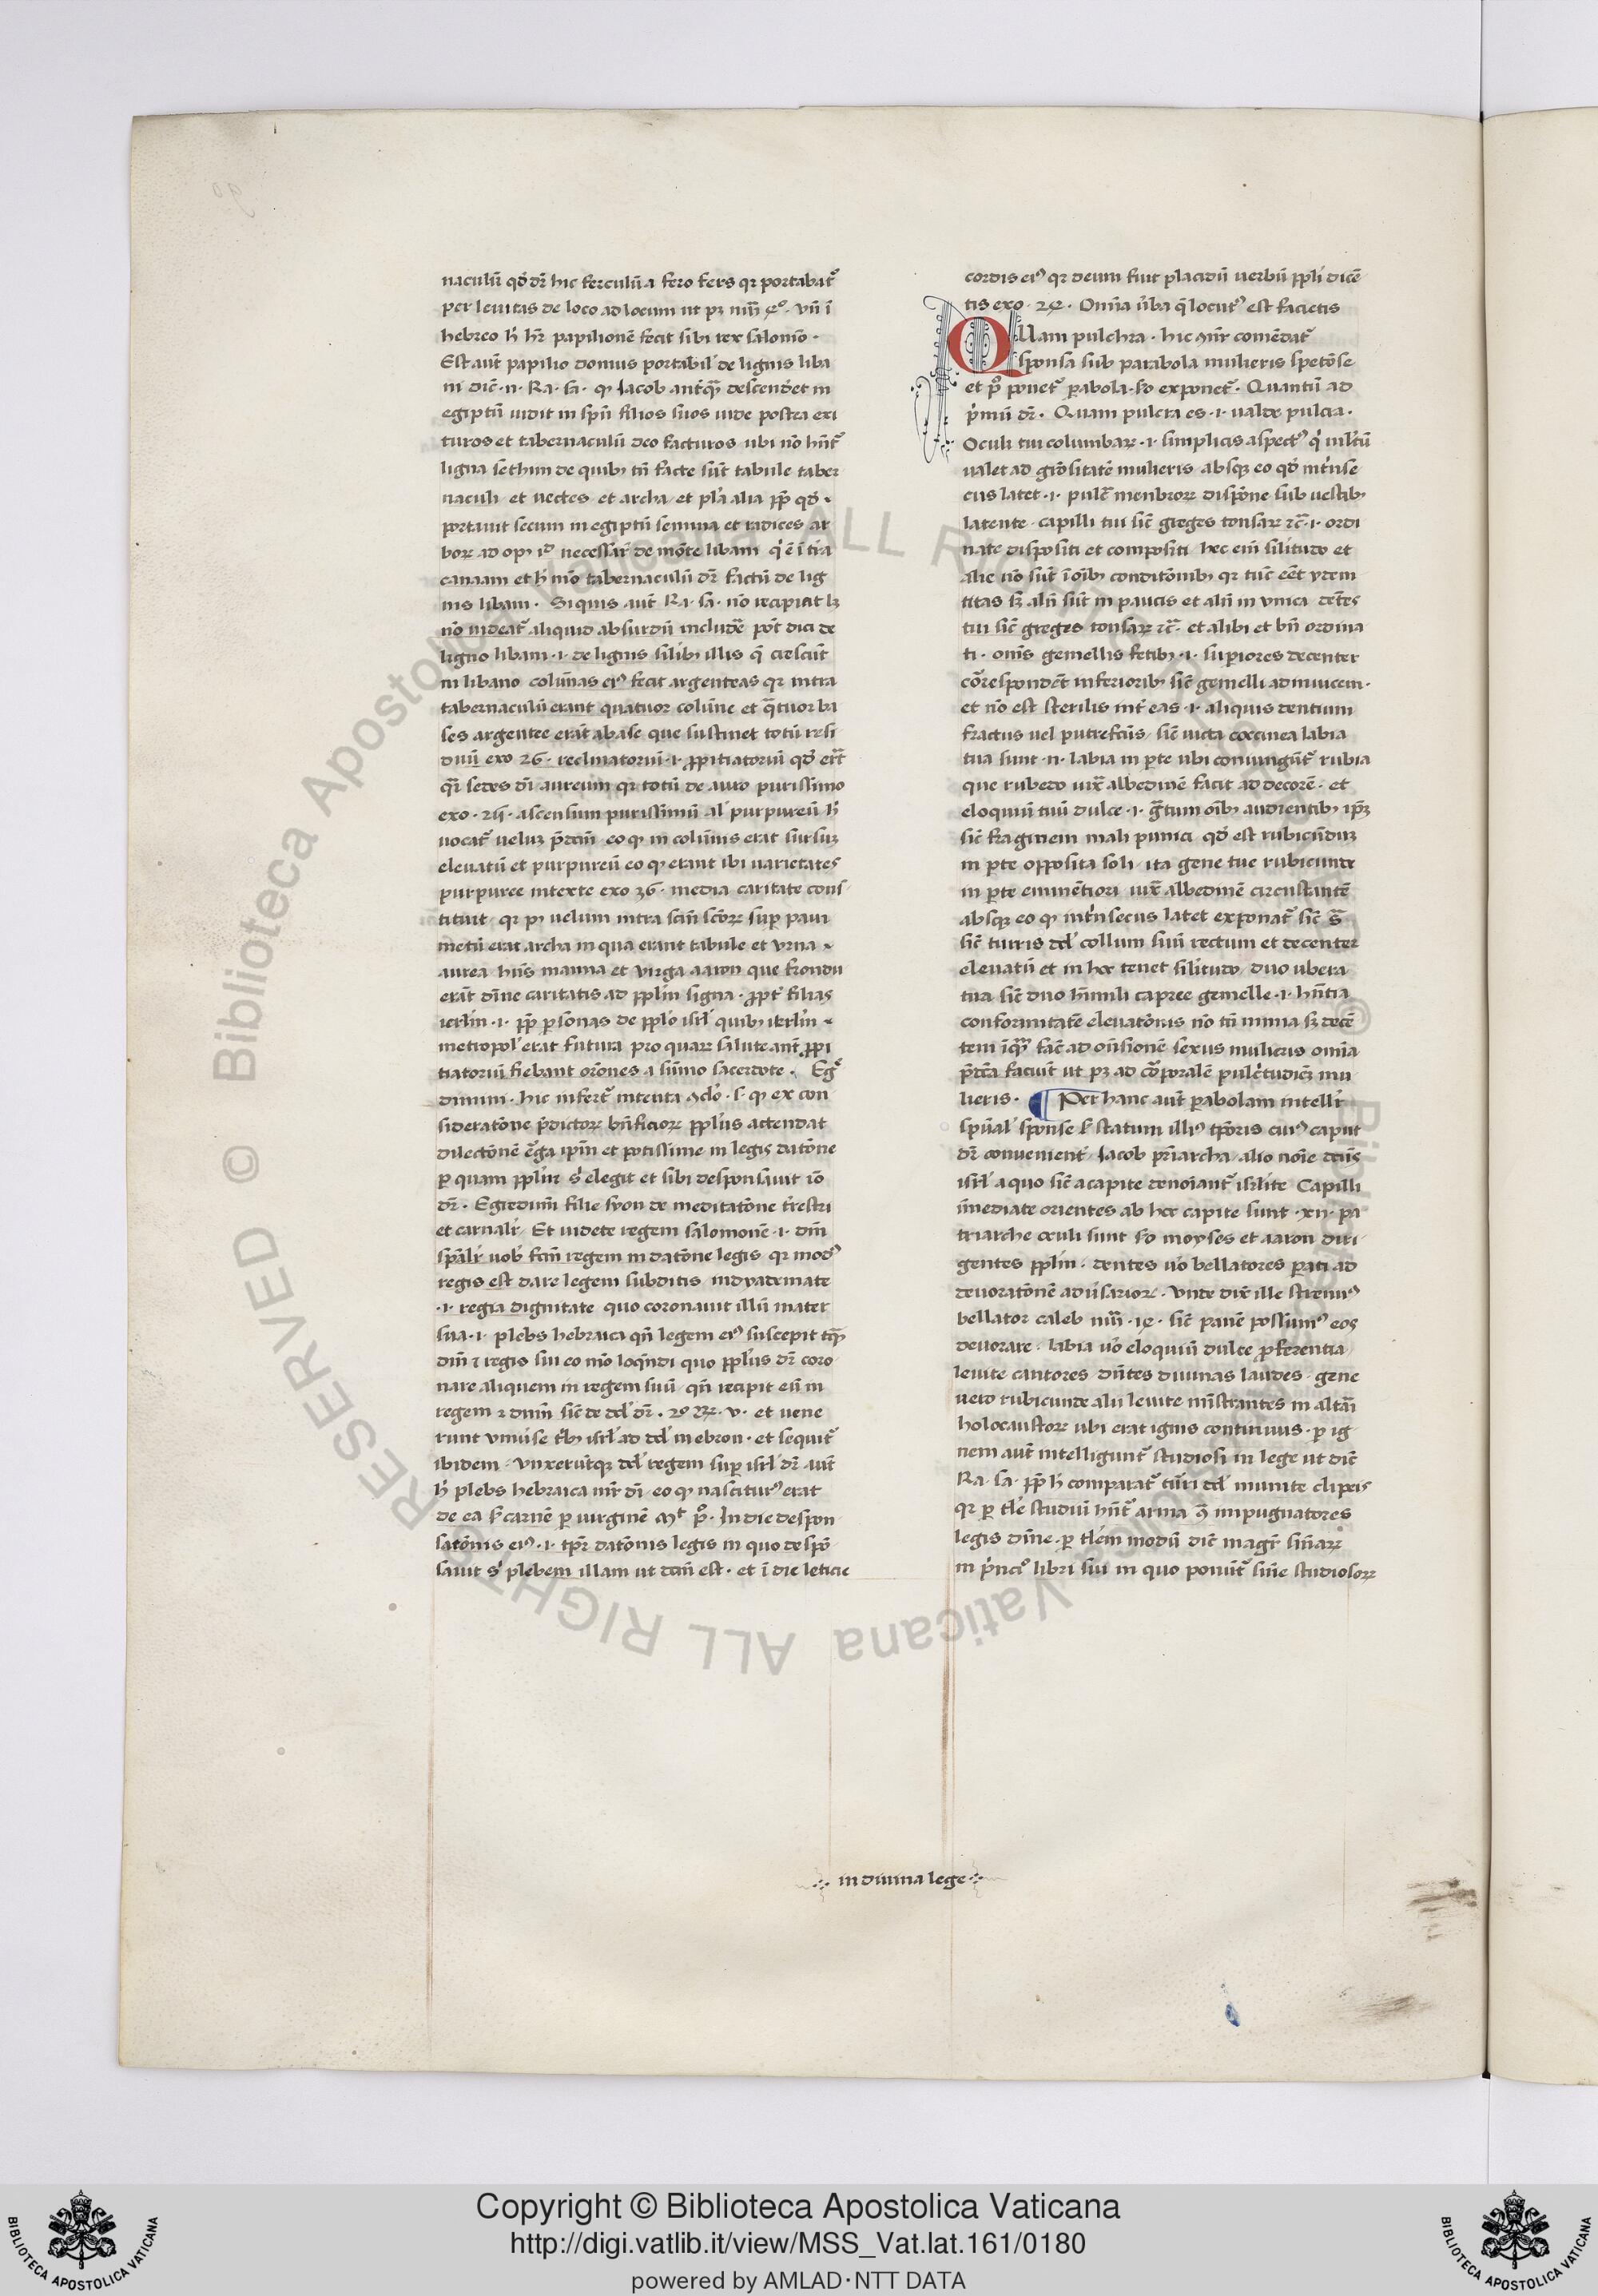 naculū qd̄ dr̄ hic ferculū a fero fers qr portabat᷑
per leuitas de loco ad locum ut pꝫ nūi 4º. vn̄ ī
hebreo hꝰ hr̄ papilionē fecit sibi rex salomō.
Est aūt papilio domus portabil' de lignis liba
ni dic̄ .n. Ra. sa. qꝫ Jacob ant̄qꝫ descend̄et in
egiptū uidit in sp̄u filios suos inde postea exi
turos et tabernaculū deo facturos ubi nō hn̄t᷑
ligna sethim de quibꝫ tn̄ facte sūt tabule taber
naculi et uectes et archa et pl̄a alia pp̄ qd̄
portauit secum in egiptū semina et radices ar
borꝝ ad opꝫ id necessar̄ de mōte libani q̄ ē ī tr̄a
canaam et h' mō tabernaculū dr̄ factū de lig
nis libani. Si quis aūt Ra. sa. nō recipiat lꝫ
nō uideat᷑ aliquid absurdū includ̄e pōt dici de
ligno libani .i. de lignis silibꝫ illis q̄ crescūt
in libano colūnas eiꝰ fecit argenteas qr intra
tabernaculū erant quatuor colūne et q̄tuor ba
ses argentee erāt a base que sustinet totū resi
duū exo 26. reclinatoriū .i. ꝓpitiatoriū qd̄ erat
q̄i sedes dī aureum qr totū de auro purissimo
exo. 25. ascensum purissimū al' purpureū h'
uocat᷑ ueluꝫ p̄dc̄m eo qꝫ in colūnis erat sursuꝫ
eleuatū et purpureū eo qꝫ erant ibi uarietates
purpuree intexte exo 36. media caritate cons
tituit qr pꝰ uelum intra sc̄m sc̄orꝝ suꝑ paui
metū erat archa in qua erant tabule et vrna
aurea hn̄s manna et virga aaron que frondu
erāt dīne caritatis ad pp̄lm signa. ꝓpt̄ filias
ierlm̄ .i. pp̄ ꝑsonas de pp̄lo isrl' quibꝫ ierlm̄
metropol' erat futura pro quarꝝ salute an̄t ꝓpi
tiatoriū fiebant orōnes a sūmo sacerdote. Eg᷑
dimini. hic infert᷑ intenta ꝯclo. s. qꝫ ex con
sideratōne p̄dictorꝝ bn̄ficiorꝝ pp̄lus actendat
dilectōnē ēga ipm̄ et potissime in legis datōne
ꝑ quam pp̄lm̄ s' elegit et sibi desponsauit iō
dr̄. Egredim̄ filie syon de meditatōne t̄restri
et carnali. Et uidete regem salomonē .i. dm̄
sp̄alr̄ uob' fcm̄ regem in datōne legis qr modꝰ
regis est dare legem subditis in dyademate
.i. regia dignitate quo coronauit illū mater
sua .i. plebs hebraica qn̄ legem eiꝰ suscepit tqꝫ
dm̄ ⁊ regis sui eo mō loq̄ndi quo pp̄lus dr̄ coro
nare aliquem in regem suū qn̄ recipit eū in
regem ⁊ dnm̄ sic̄ de dd' dr̄. 2º R̄. v. et uene
runt vniuse tbꝫ isrl' ad dd' in ebron. et sequit᷑
ibidem. vnxerūtqꝫ dd' regem suꝑ isrl' dr̄ aūt
h' plebs hebraica mr̄ dī eo qꝫ nascituꝰ erat
de ea ẜ carnē ꝑ uirginē mt pº. In die despon
satōnis eiꝰ .i. tp̄r datōnis legis in quo despō
sauit s' plebem illam ut dcm̄ est. et ī die leticie
cordis eiꝰ qr deum fuit placidū uerbū pp̄li dicē
tis exo. 24. Omīa ūba q̄ locutꝰ est facietis
Quam pulchra. hic ꝯn̄r comēdat᷑
sponsa sub parabola mulieris spetōse
et pº ponet᷑ ꝑabola. sº exponet᷑. Quantū ad
p̄mū dr̄. Quam pulcra es .i. ualde pulcra.
Oculi tui columbarꝝ .i. simplicis aspectꝰ q̄ mltū
ualet ad grōsitatē mulieris absqꝫ eo qd̄ int̄nse
cus latet .i. pulc̄ menbrorꝝ dispōne sub uestibꝫ
latente. capilli tui sic̄ greges tonsarꝝ ⁊c̄ .i. ordi
nate dispositi et compositi hec eni silitudo et
alie nō sūt ī oībꝫ conditōnibꝫ qr tūc eēt ydem
titas sꝫ alii sūt in paucis et alii in vnica dētes
tui sic̄ greges tonsarꝝ ⁊c̄. et alibi et bn̄ ordina
ti. oms̄ gemellis fetibꝫ .i. suꝑiores decenter
cōrespondēt inferioribꝫ sic̄ gemelli ad inuicem.
et nō est sterilis int̄ eas .i. aliquis dentium
fractus uel putrefcūs sic̄ uicta coccinea labia
tua sunt .n. labia in ꝑte ubi coniungūt᷑ rubia
que rubedo iux̄ albedinē facit ad decorē. et
eloquiū tuū dulce .i. gr̄tum oībꝫ audientibꝫ ipꝫ
sic̄ fragmem mali punici qd̄ est rubicūduꝫ
in ꝑte opposita soli ita gene tue rubicunde
in ꝑte eminētiori iux̄ albedinē circūstantē
absqꝫ eo qꝫ int̄nsecus latet exponat᷑ sic̄ s̄
sic̄ turris dd' collum suū rectum et decenter
eleuatū et in hoc tenet silitudo duo ubera
tua sic̄ duo hīnuli capree gemelle .i. hn̄tia
conformitatē eleuatōnis nō tn̄ nimia sꝫ decē
tem īqꝫ fac̄ ad on̄sionē sexus mulieris omīa
p̄dc̄a faciūt ut pꝫ ad cōporalē pulc̄tudieꝫ mu
lieris. ¶ Per hanc aūt ꝑabolam intellr̄
spūal' sponse ẜ statum illiꝰ tp̄oris cuiꝰ caput
dr̄ conuenient̄ Jacob p̄riarcha alio noīe dcūs
isrl' a quo sic̄ a capite denoīant᷑ isrlite Capilli
īmediate orientes ab hoc capite sunt .xii. pa
triarche oculi sunt sº moyses et aaron diri
gentes pp̄lm. dentes ūo bellatores ꝑati ad
deuoratōnē adūsariorꝝ. Vnde dix̄ ille strenuꝰ
bellator caleb nūi .14. sic̄ panē possumꝰ eos
deuorare. labia ūo eloquiū dulce ꝓferentia
leuite cantores dn̄tes diuinas laudes. gene
uero rubicunde alii leuite mīstrantes in altāi
holocaustorꝝ ubi erat ignis continuus. ꝑ ig
nem aūt intelligunt᷑ studiosi in lege ut dic̄
Ra. sa. pp̄ h' comparat᷑ turri dd' munite clipeis
qr ꝑ tl'e studiū hn̄t᷑ arma ꝯ̄ impugnatores
legis dīne. ꝑ tl'em modū dic̄ mag̅r sn̄iarꝝ
in p̄ncº libri sui in quo ponūt᷑ sn̄ie studiosorꝝ
in diuina lege
Copyright © Biblioteca Apostolica Vaticana
http://digi.vatlib.it/view/MSS_Vat.lat.161/0180
powered by AMLAD·NTT DATA
BIBLIOTECA APOSTOLICA VATICANA
BIBLIOTECA APOSTOLICA VATICANA
© Biblioteca Apostolica Vaticana ALL RIGHTS RESERVED